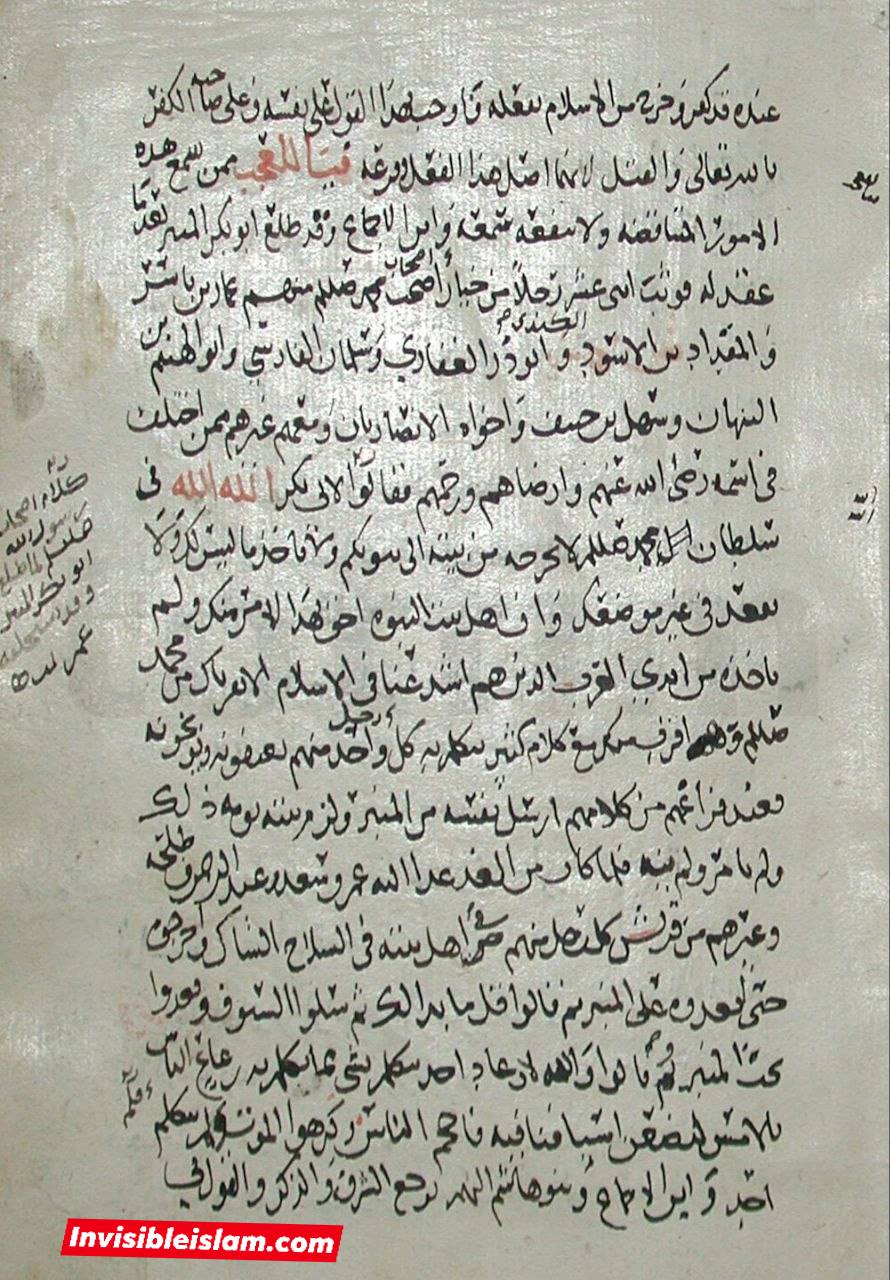 عنده فقد كفر وخرج من الاسلام بفعله فاوجب بهذا القول على نفسه وعلى صاحبه الكفر
بالله تعالى والقتل لانهما اصل هذا الفعل وفرعه فيا للعجب ممن سمع هذه
الامور المتناقضة ولا ينفعه سمعه واين الاجماع وقد طلع ابو بكر المنبر بعد ما
عقد له فوثب اثنى عشر رجلا من خيار اصحاب محمد صللم منهم عمار بن ياسر
والمقداد بن الاسود الكندي وابو ذر الغفاري وسلمان الفارسي وابو الهيثم بن
التيهان وسهل بن حنيف واخواه الانصاريان ومعهم غيرهم ممن اختلف
في اسمه رضي الله عنهم وارضاهم ورحمهم فقالوا لابي بكر الله الله في
سلطان محمد صللم لا تخرجه من بيته الى بيوتكم ولا تاخذ ما ليس لك ولا
تقعد في غير موضعك وان اهل بيت النبوة احق بهذا الامر منك ولم
تاخذه من ايدي العرب الذين هم اشد عنا في الاسلام الا بقرباك من محمد
صللم وهم اقرب منك مع كلام كثير يتكلم به كل رجل واحد منهم يعنفونه ويوبخونه
فعند فراغهم من كلامهم ارسل نفسه من المنبر ولزم بيته يومه ذلك
ولم يامر ولم ينه فلما كان من الغد غدا اليه عمر وسعد وعبد الرحمن وطلحة
وغيرهم من قريش كل رجل منهم في اهل بيته في السلاح الشاك واخرجوه
حتى اقعدوه على المنبر ثم قالوا قل ما بدا لك ثم سلوا السيوف وقعدوا
تحت المنبر ثم قالوا والله لا عاد احد يتكلم بشي مما تكلم به رعاع الناس
بالامس لنضعن اسيافنا فيه فاحجم الناس وكرهوا الموت فلم يتكلم
احد واين الاجماع وبنو هاشم الذين يرجع الشرف والذكر والقول في
كلام اصحاب
رسول الله
صللم لما طلع
ابو بكر المنبر
Invisibleislam.com